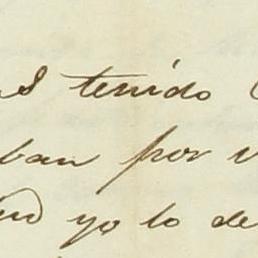 tenido
ban por
yo lo de